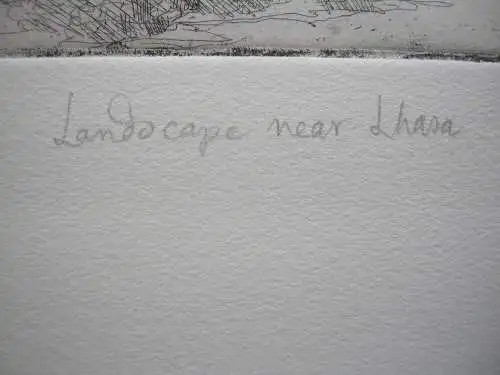 Landscape near Lhasa